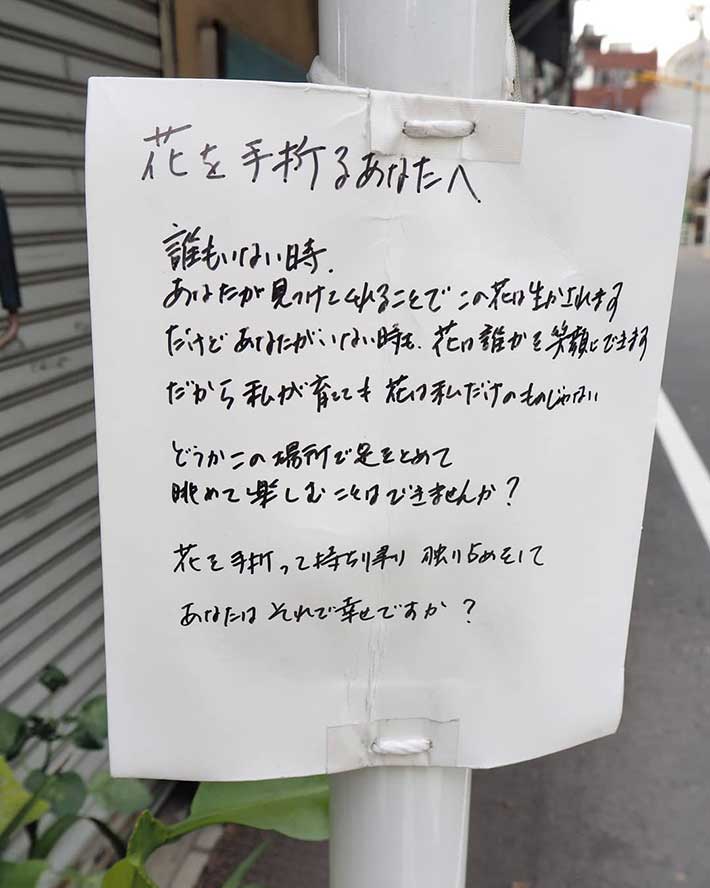 花を手折るあなたへ
誰もいない時、
あなたが見つけてくれることでこの花は生かされます
だけどあなたがいない時も、花は誰かを笑顔にできます
だから私が育てても花は私だけのものじゃない
どうかこの場所で足をとめて
眺めて楽しむことはできませんか？
花を手折って持ち帰り独り占めをして
あなたはそれで幸せですか？